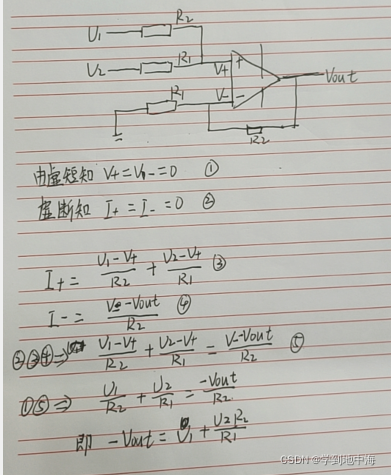 U₁ R₂
U₂ R₁ V+ +
R₁ V- - Vout
R₂
由虚短知 V+=V-=0 ①
虚断知 I+=I-=0 ②
I+= (U₁-V+)/R₂ + (U₂-V+)/R₁ ③
I-= (V--Vout)/R₂ ④
②③④⇒ (U₁-V+)/R₂ + (U₂-V+)/R₁ = (V--Vout)/R₂ ⑤
①⑤⇒ U₁/R₂ + U₂/R₁ = -Vout/R₂
即 -Vout= U₁+ U₂R₂/R₁
CSDN @学到地中海